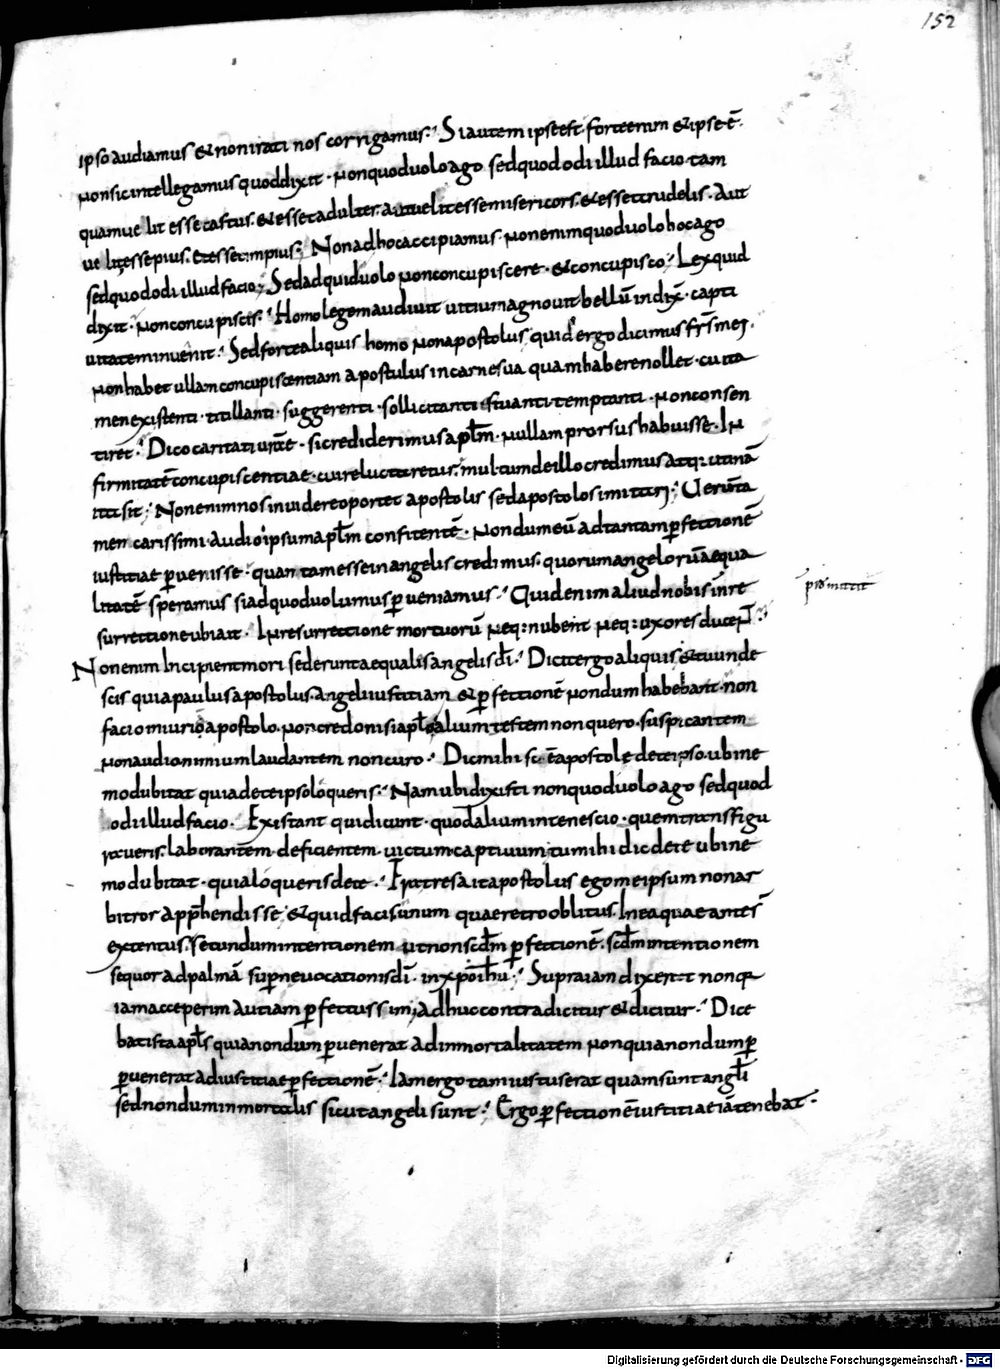 152
ipso audiamus & non irati nos corrigamus. Si autem ipse est. forte enim & ipse ē.
non sic intellegamus quod dixit. non quod uolo ago sed quod odi illud facio. tam
quam uelit esse castus. & esset adulter. aut uelit esse misericors. & esset crudelis. Aut
uelit esse pius. & esset impius. Non ad hoc accipiamus. non enim quod uolo hoc ago
sed quod odi illud facio. Sed ad quid uolo non concupiscere. & concupisco. Lex quid
dixit. non concupiscis. Homo legem audiuit uitium agnouit bellū indix̄. capti
uitatem inuenit. Sed forte aliquis homo non apostolus quid ergo dicimus fr̄s mei.
non habet ullam concupiscentiam apostulus in carne sua quam habere nollet. cui ta
men existenti. titillanti. suggerenti. sollicitanti estuanti temptanti. non consen
tiret. Dico caritati ur̄ae. si crediderimus apl̄m. nullam prorsus habuisse. In
firmitatē concupiscentiae. cui reluctaretur. multum de illo credimus atq; utinā
ita sit. Non enim nos inuidere oportet apostolis sed apostolos imitari. Uerūta
men carissimi. audio ipsum apl̄m confitentē. nondum eū ad tantam perfectionē
iustitiae peruenisse. quantam esse in angelis credimus. quorum angelorū aequa
litatē speramus si ad quod uolumus perueniamus. Quid enim aliud nobis in re
promittit
surrectione ubi ait. In resurrectione mortuorū neq; nubent neq; uxores ducent.
Non enim Incipient mori sed erunt aequalis angelis dī. Dicit ergo aliquis & tu unde
scis quia paulus apostolus. angeli iustitiam & perfectionē nondum habebant. non
facio iniuriā apostolo. non credo nisi apl̄o alium testem non quero. suspicantem
non audio nimium laudantem non curo. Dic mihi sc̄e apostole de te ipso. ubi ne
mo dubitat quia de te ipso loqueris. Nam ubi dixisti non quod uolo ago sed quod
odi illud facio. Existant qui dicunt. quod alium in te nescio. quem transfigu
raueris. laborantem. deficientem. uictum captiuum tu mihi dic de te ubi ne
mo dubitat. quia loqueris de te. Fratres ait apostolus ego me ipsum non ar
bitror apprehendisse. & quid facis unum quae retro oblitus. In ea quae ante s̄
extentus. secundum intentionem ut non scd̄m perfectionē. scd̄m intentionem
sequor ad palmā supernē uocationis dī. in xpō ihū. Supra iam dixerat non q
iam acceperim aut iam perfectus sim, adhuc contradicitur & dicitur. Dice
bat ista apl̄s quia nondum peruenerat ad inmortalitatem non quia nondum per
peruenerat ad iustitiae perfectionē. Iam ergo tam iustus erat quam sunt angl̄i
sed nondum inmortalis sicut angeli sunt. Ergo perfectionē iustitiae iā tenebat.
Digitalisierung gefördert durch die Deutsche Forschungsgemeinschaft - DFG